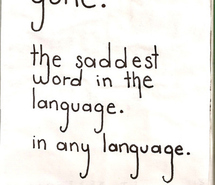 gone.
the saddest
word in the
language.
in any language.